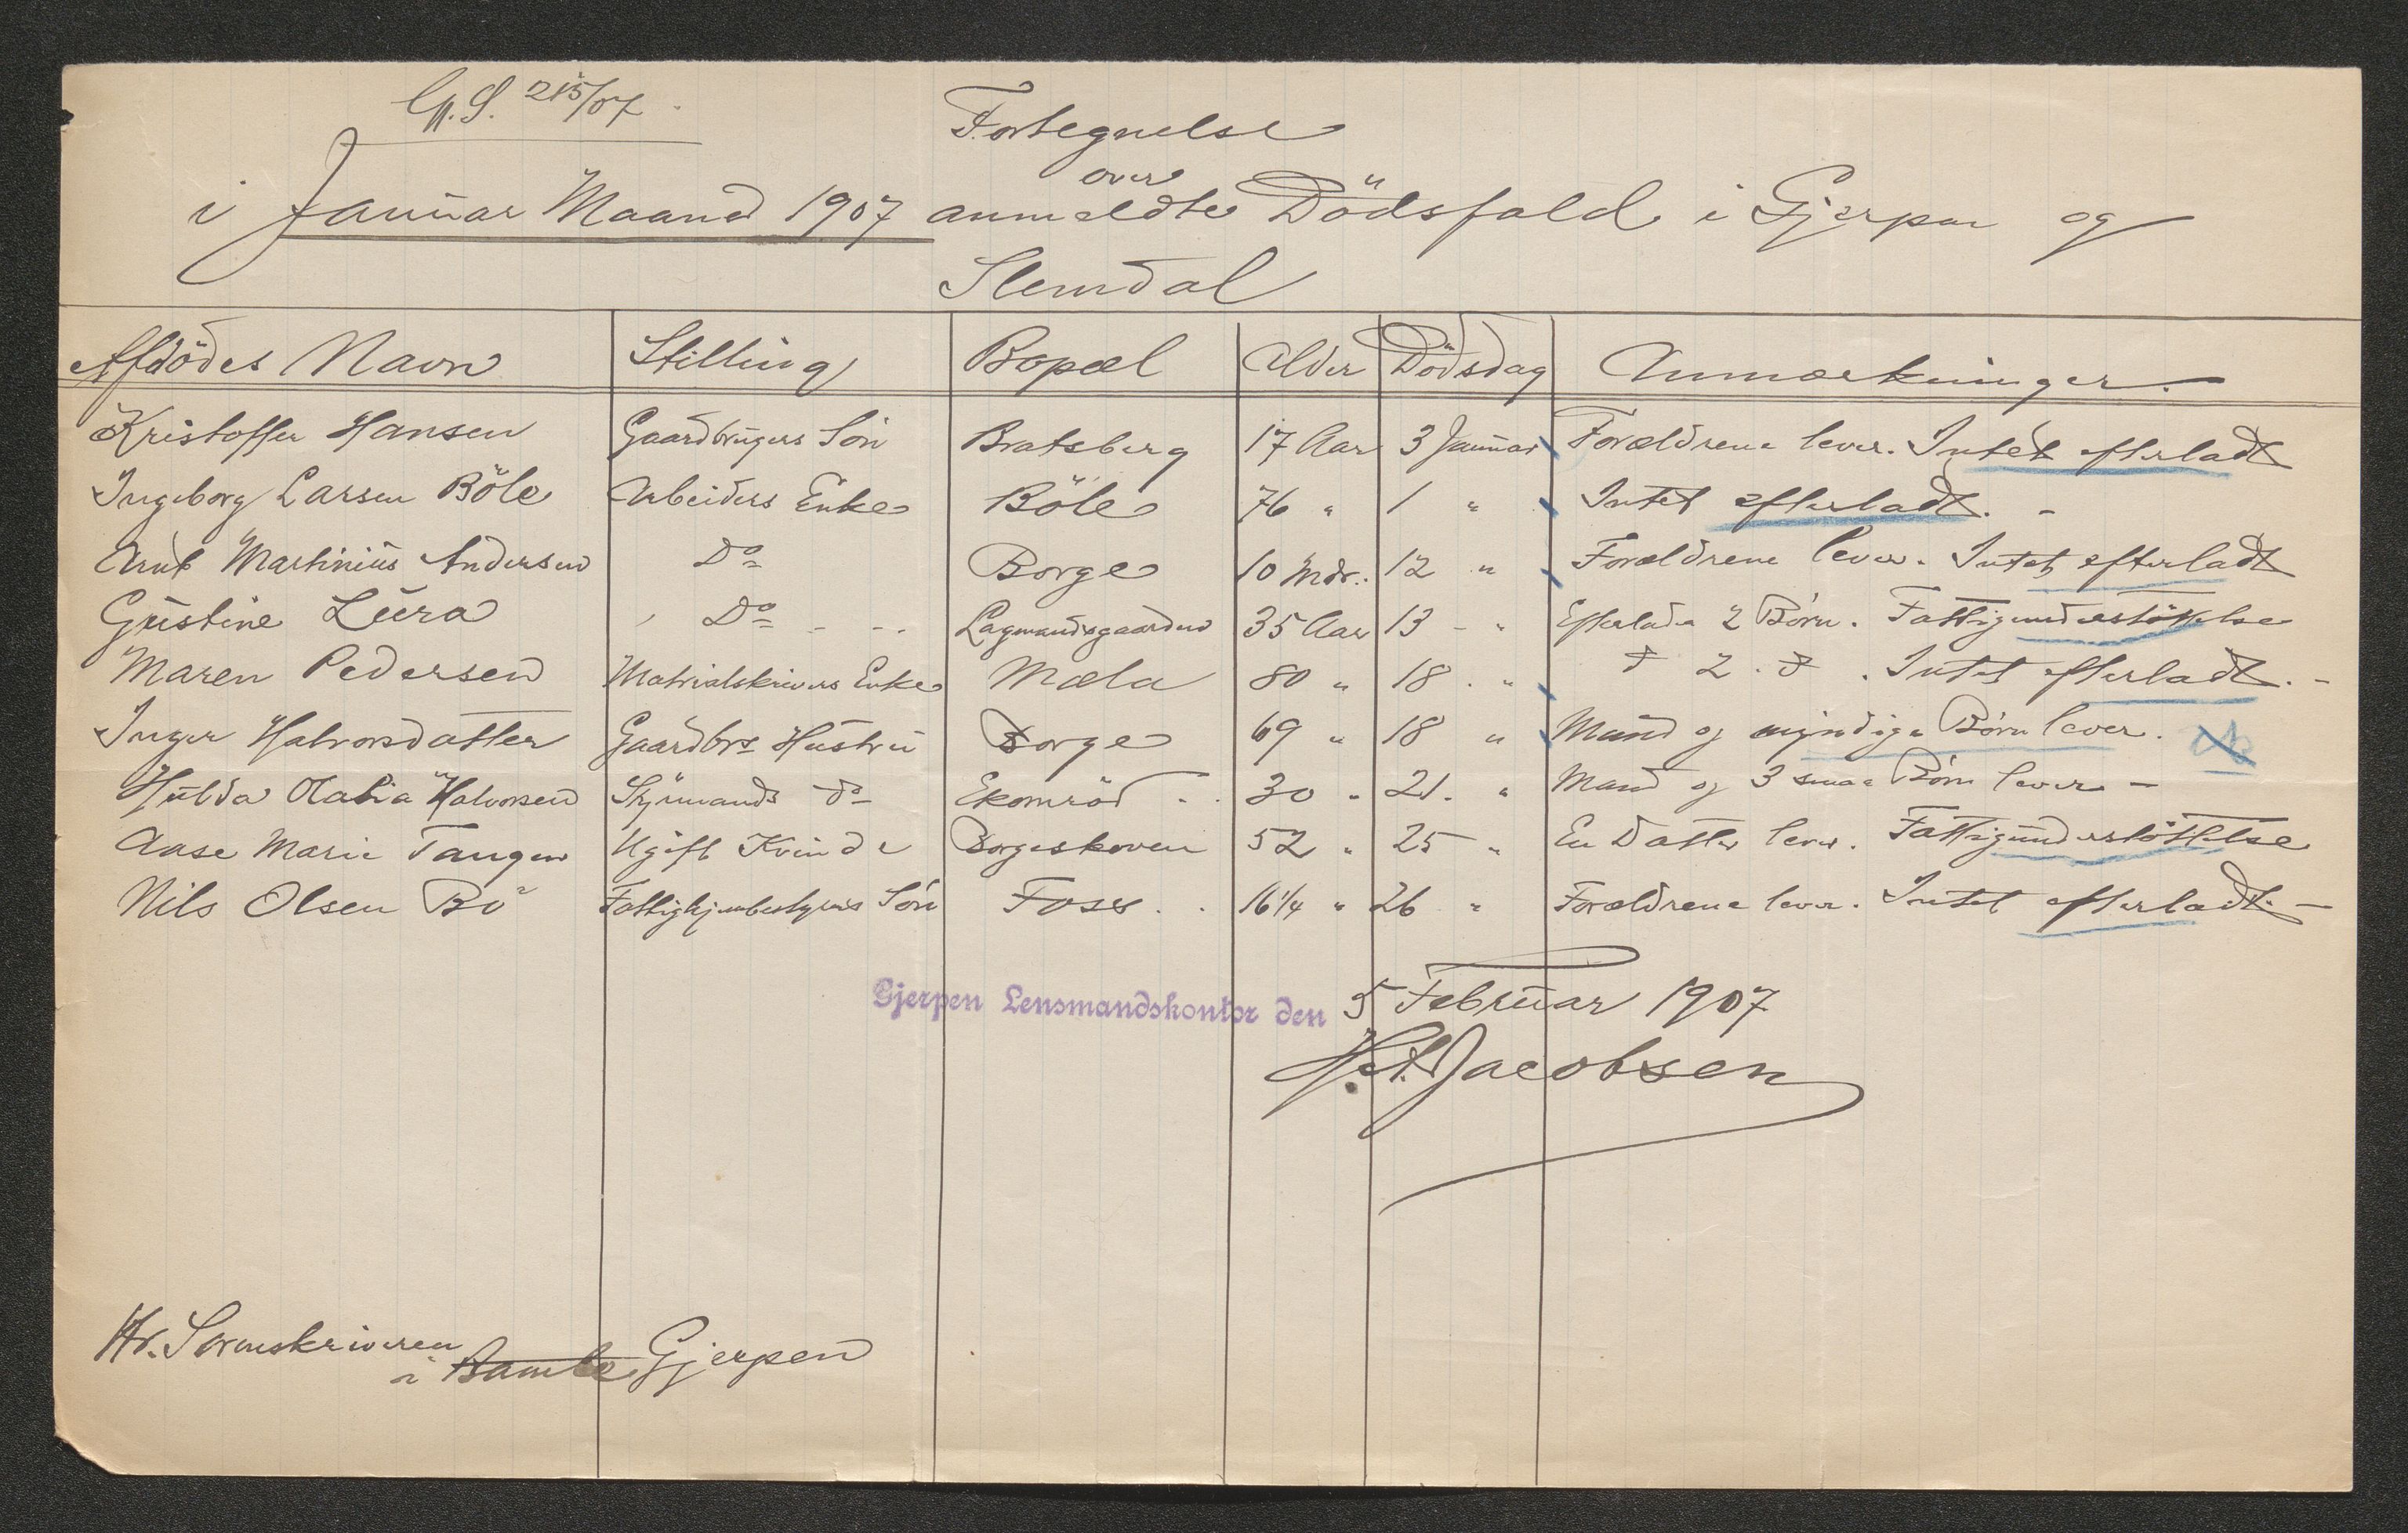 G.S. 215/07.
Fortegnelse
over
i Januar Maaned 1907 anmeldte Dödsfald i Gjerpen og
Slemdal
Afdödes Navn Stilling Bopæl Alder Dödsdag Anmærkninger.
Kristoffer Hansen Gaardbrugers Sön Bratsberg 17 Aar 3 Januar Forældrene lever. Intet efterladt
Ingeborg Larsen Böle Arbeiders Enke Böle 76 " 1 " Intet efterladt. -
Arnt Martinius Andersen Do Borge 10 Mdr. 12 " Forældrene lever. Intet efterladt
Gustine Lura Do - - Lagmandsgaarden 35 Aar 13 - " Efterlader 2 Börn. Fattigunderstöttelse
Maren Pedersen Matrialskrivers Enke Mæla 80 " 18 . " d 2 . d . Intet efterladt. -
Inger Halvorsdatter Gaardbrs Hustru Borge 69 " 18 " Mand og myndige Börn lever.
Hulda Olalia Halvorsen Styrmands do Ekornröd . . 30 " 21. " Mand og 3 smaa Börn lever -
Aase Marie Tangen Ugift Kvinde Borgeskoven 52 " 25 " En Datter lever. Fattigunderstöttelse
Nils Olsen Bö Fattighjembestyrers Sön Foss . . 16 1/4 " 26 " Forældrene lever. Intet efterladt. -
Gjerpen Lensmandskontor den 5 Februar 1907
Jacobsen
Hr. Sorenskriveren
i Bamle Gjerpen